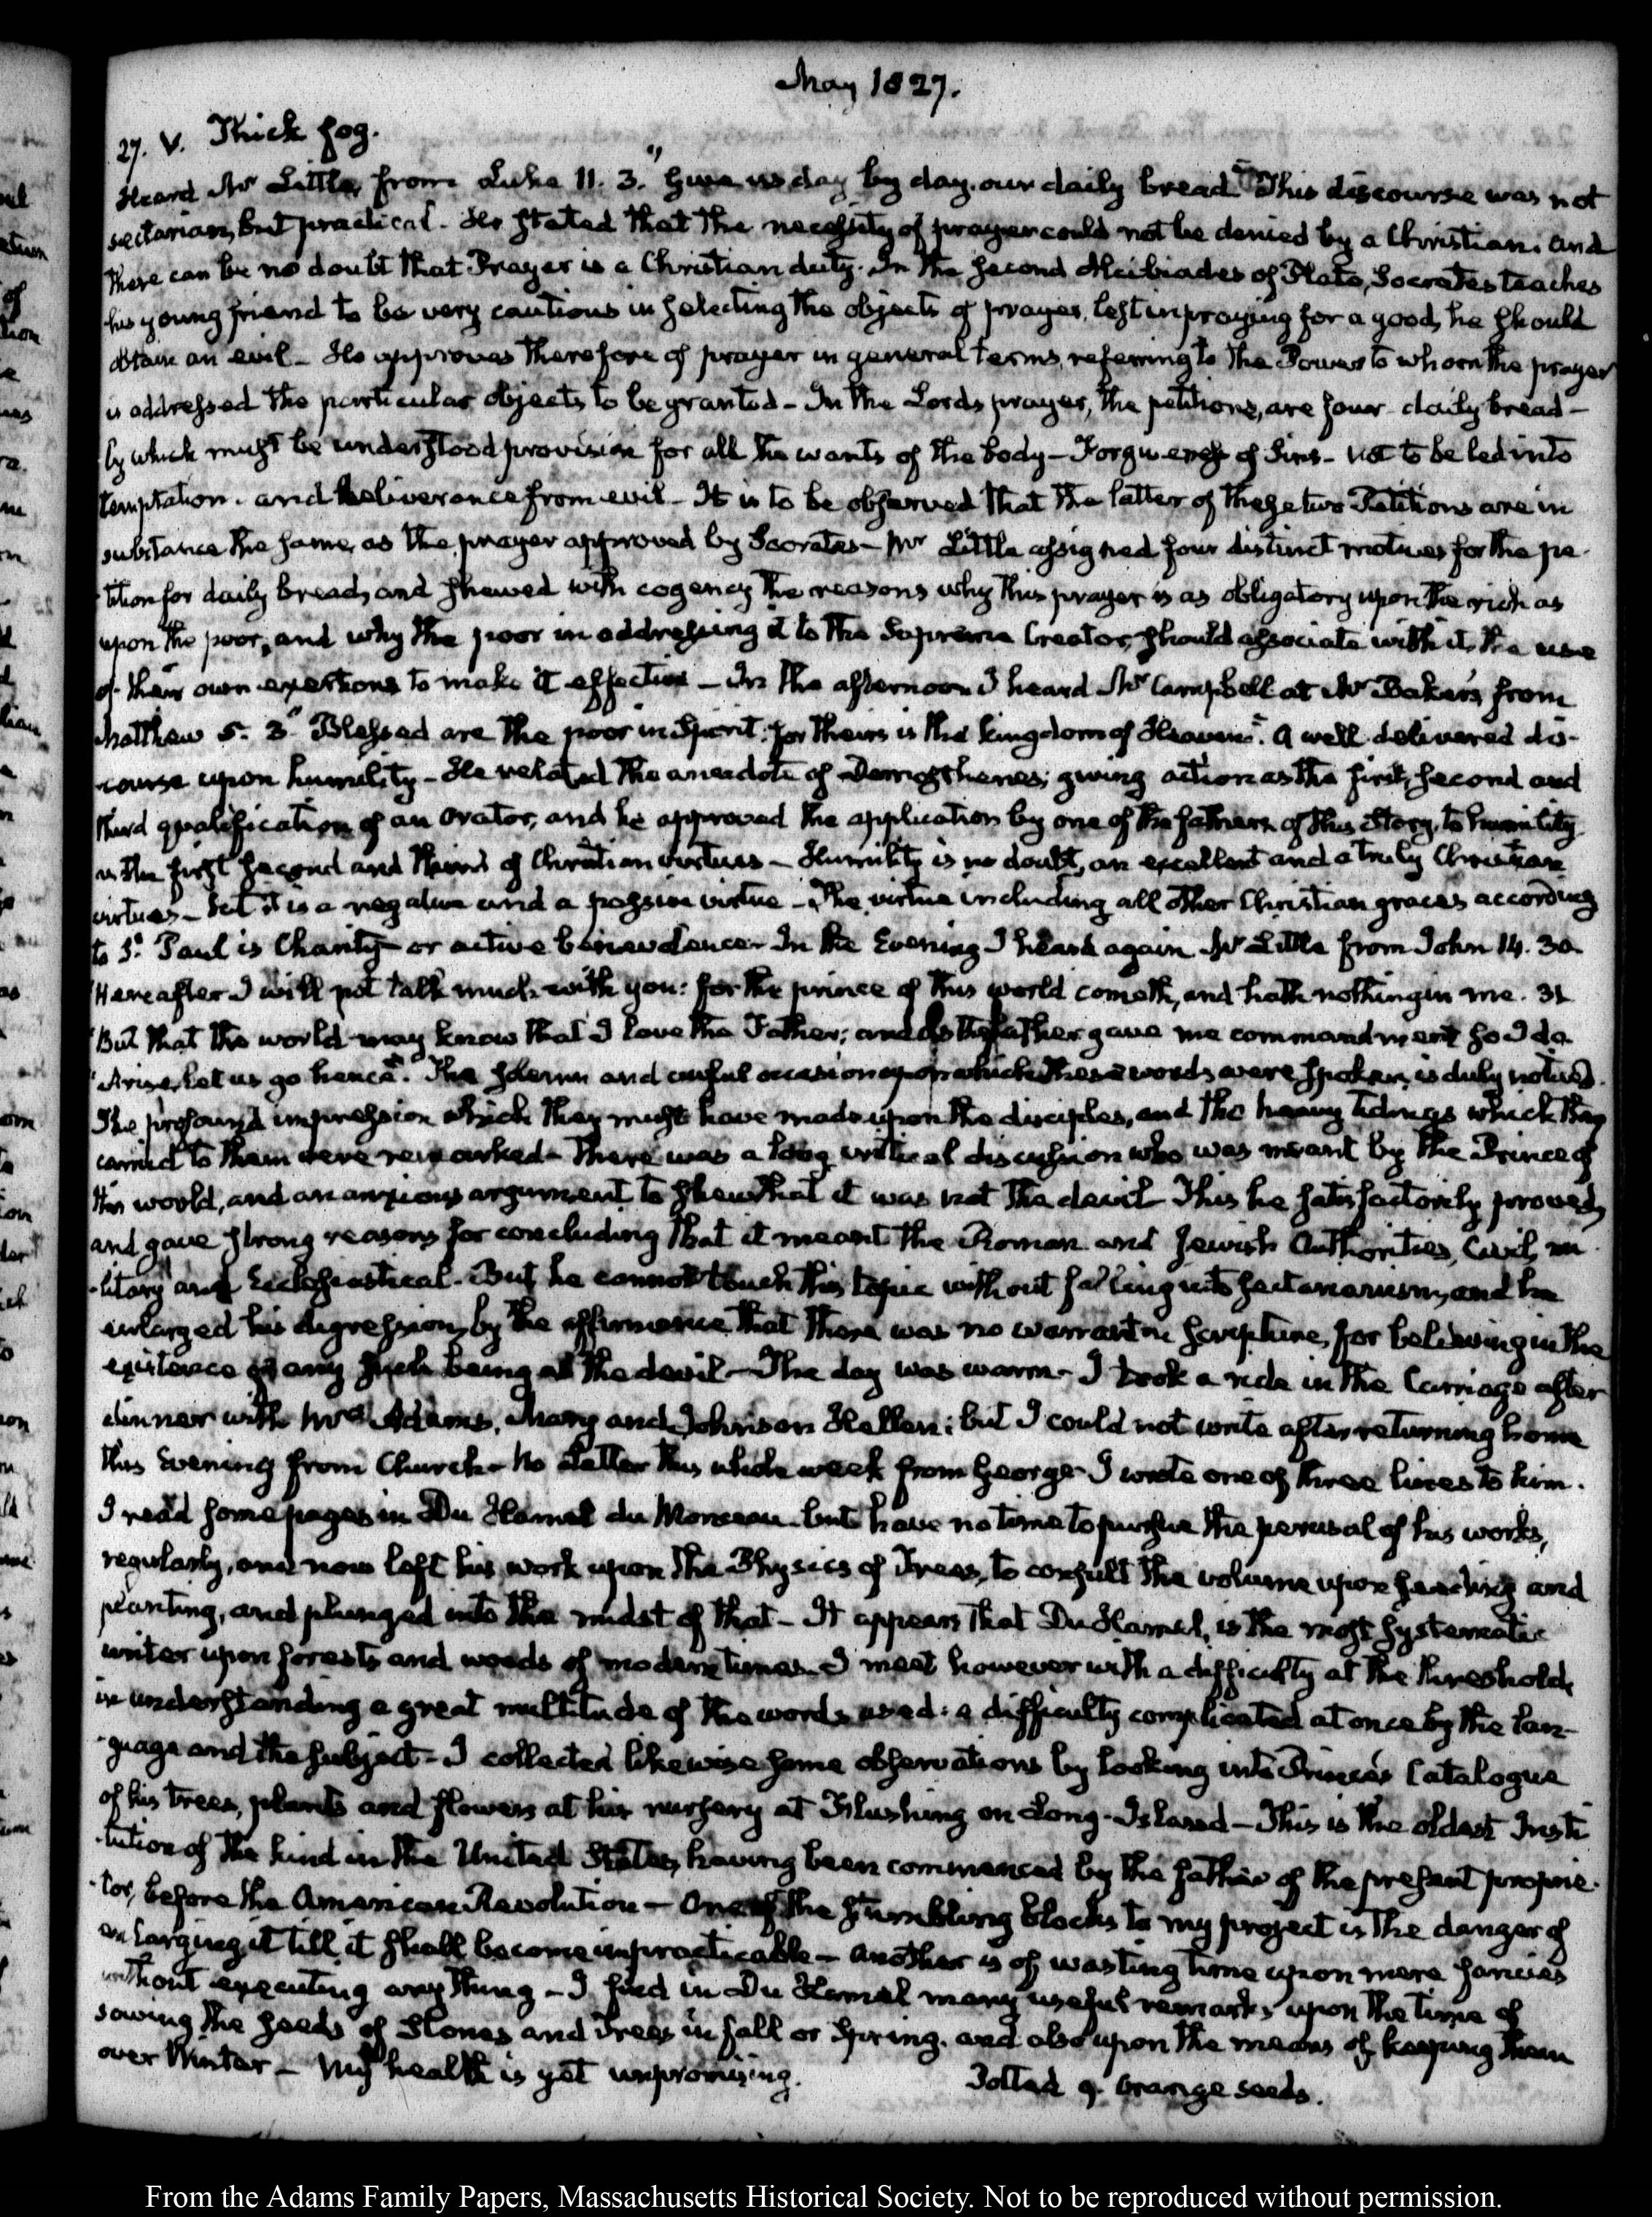 May 1827.
27. V. Thick fog.
Heard Mr Little, from Luke 11. 3. "Give us day by day, our daily bread" This discourse was not
sectarian, but practical. He stated that the necessity of prayer could not be denied by a Christian. and
there can be no doubt that Prayer is a Christian duty. In the second Alcibiades of Plato, Socrates teaches
his young friend to be very cautious in selecting the objects of prayer, lest in praying for a good, he should
obtain an evil - He approves therefore of prayer in general terms, referring to the Power to whom the prayer
is addressed the particular objects to be granted - In the Lords prayer, the petitions, are four - daily bread -
by which must be understood provision for all the wants of the body - Forgiveness of Sins - not to be led into
temptation. and deliverance from evil - It is to be observed that the latter of these two Petitions are in
substance the same, as the prayer approved by Socrates - Mr Little assigned four distinct motives for the pe-
tition for daily bread, and shewed with cogency the reasons why this prayer is as obligatory upon the rich as
upon the poor, and why the poor in addressing it to the Supreme Creator, should associate with it, the use
of their own exertions to make it effective - In the afternoon I heard Mr Campbell at Mr Baker's from
Matthew 5. 3. "Blessed are the poor in Spirit: for theirs is the kingdom of Heaven". A well delivered dis-
course upon humility - He related the anecdote of Demosthenes; giving action as the first, second and
third qualification of an orator, and he approved the application by one of the fathers of this Story, to humility
as the first second and third of Christian virtues - Humility is no doubt, an excellent and a truly Christian
virtue - but it is a negative and a passive virtue - The virtue including all other Christian graces according
to St. Paul is Charity - or active benevolence - In the Evening I heard again Mr Little from John 14. 30.
"Hereafter I will not talk much with you: for the prince of this world cometh, and hath nothing in me. 31
"But that the world may know that I love the Father; and as the father gave me commandment so I do.
"Arise, let us go hence". The solemn and awful occasion upon which these words were spoken, is duly noticed.
The profound impression which they must have made upon the disciples, and the heavy tidings which they
carried to them were remarked - There was a long critical discussion who was meant by the Prince of
this world, and an anxious argument to shew that it was not the devil This he satisfactorily proved,
and gave strong reasons for concluding that it meant the Roman and Jewish Authorities, Civil, mi-
litary and Ecclesiastical. But he cannot touch this topic without falling into sectarianism, and he
enlarged his digression, by the affirmance that there was no warrant in Scripture, for believing in the
existence of any such being as the devil - The day was warm - I took a ride in the Carriage after
dinner with Mrs Adams, Mary and Johnson Hellen: but I could not write after returning home
this Evening from Church - No Letter this whole week from George - I wrote one of three lines to him.
I read some pages in Du Hamel du Monceau - but have no time to pursue the perusal of his works,
regularly, and now left his work upon the Physics of Trees, to consult the volume upon seeding and
planting, and plunged into the midst of that - It appears that Du Hamel, is the most systematic
writer upon forests and woods of modern times - I meet however with a difficulty at the threshold,
in understanding a great multitude of the words used: a difficulty complicated at once by the lan-
guage and the subject - I collected likewise some observations by looking into Prince's Catalogue
of his trees, plants and flowers at his nursery at Flushing on Long-Island - This is the oldest Insti
tution of the kind in the United States, having been commenced by the father of the present proprie-
tor, before the American Revolution - One of the stumbling blocks to my project is the danger of
enlarging it till it shall become impracticable - Another is of wasting time upon mere fancies
without executing any thing - I find in Du Hamel many useful remarks upon the time of
sowing the seeds of Stones and Trees in fall or Spring. and also upon the means of keeping them
over Winter - My health is yet unpromising. Potted 9. Orange seeds.
From the Adams Family Papers, Massachusetts Historical Society. Not to be reproduced without permission.